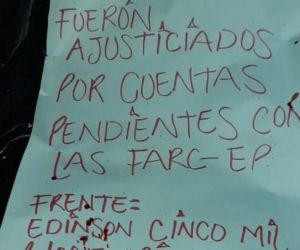 FUERÓN
AJUSTÍCÍADOS
POR CUENTAS
PENDÍENTES CON
LAS FARC-EP
FRENTE=
EDINSON CINCO MIL